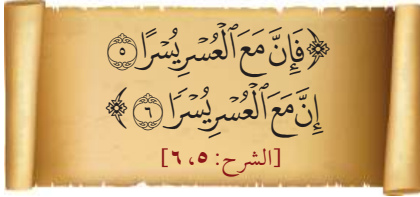 ﴿فَإِنَّ مَعَ ٱلْعُسْرِ يُسْرًا ٥
إِنَّ مَعَ ٱلْعُسْرِ يُسْرًا ٦﴾
[الشرح: ٥، ٦]